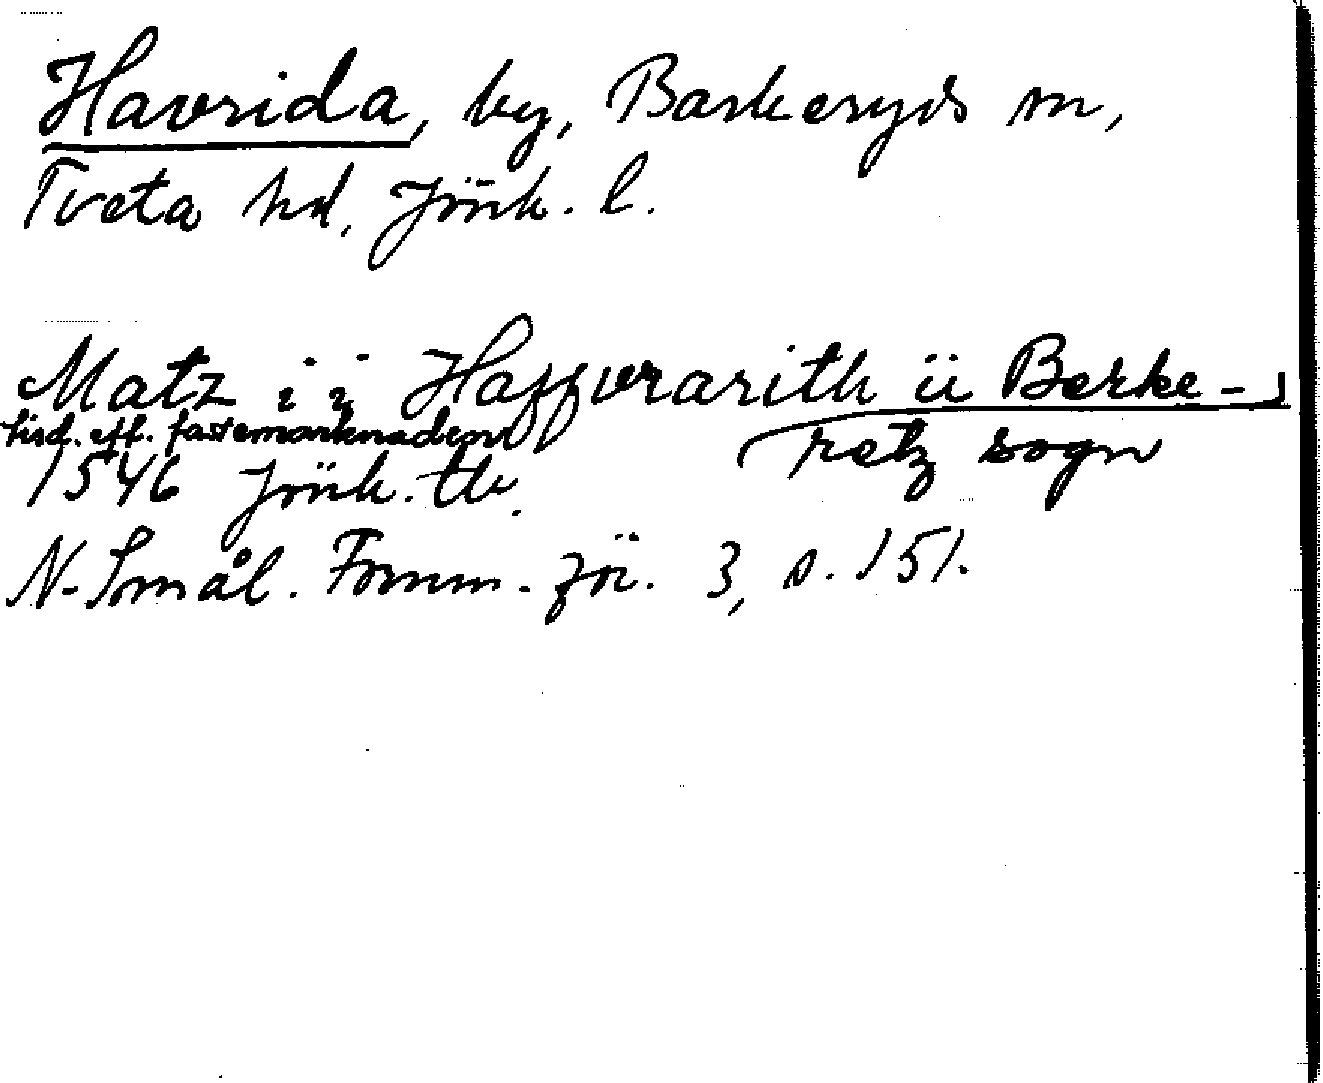 Havrida, by, Barkeryds sn,
Tveta hd, Jönk. l.
Matz i i Haffvrarith ii Berke-
retz sogn
tisd. eft. fastemarknaden
1546 Jönk. tb.
N. Smål. Fornm.-för. 3, s. 151.